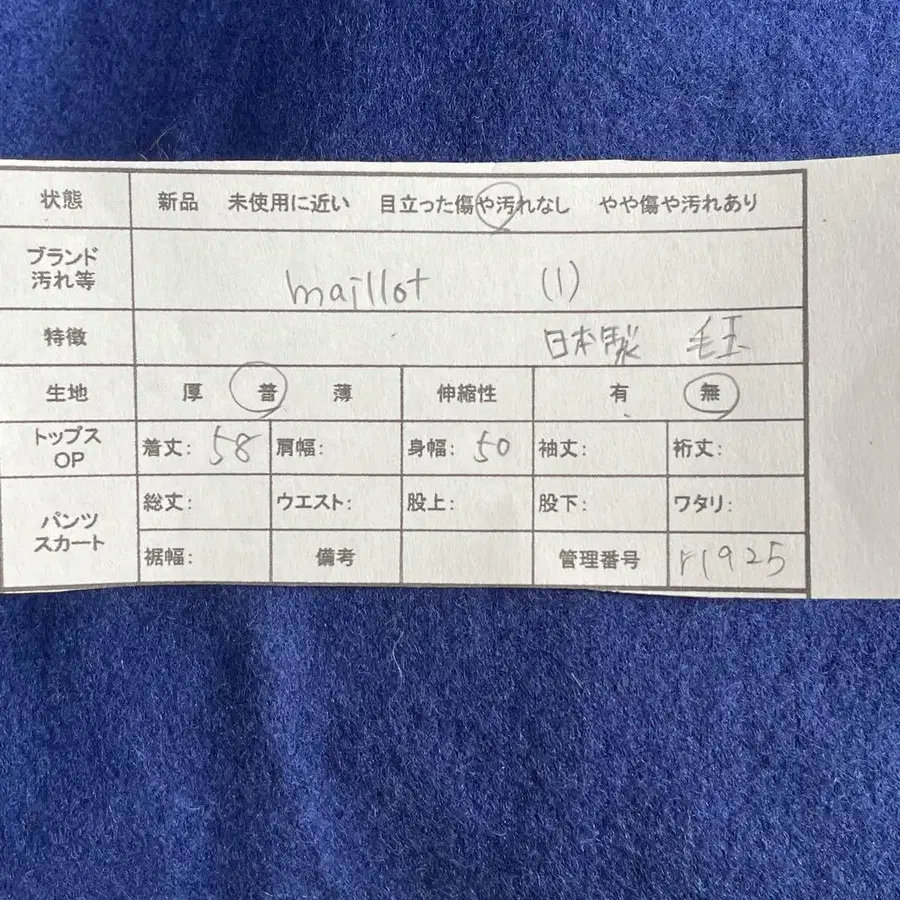 状態 新品 未使用に近い 目立った傷や汚れなし やや傷や汚れあり
ブランド
汚れ等
maillot (1)
特徴 日本製 毛玉
生地 厚 普 薄 伸縮性 有 無
トップス
OP
着丈: 58 肩幅: 身幅: 50 袖丈: 裄丈:
パンツ
スカート
総丈: ウエスト: 股上: 股下: ワタリ:
裾幅: 備考 管理番号 r1925